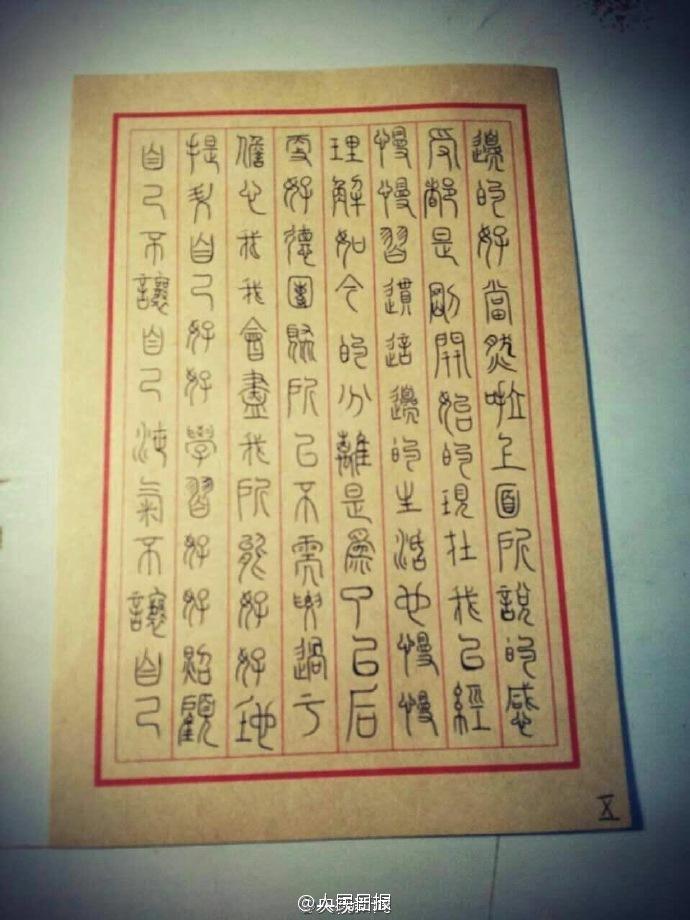 邊的好當然啦上面所說的感
受都是剛開始的現在我已經
慢慢習慣這邊的生活也慢慢
理解如今的分離是爲了以后
更好德團聚所以不需要過于
儋心我我會盡我所能好好地
提升自己好好學習好好照顧
自己不讓自己氣不讓自己
X
@人民日报